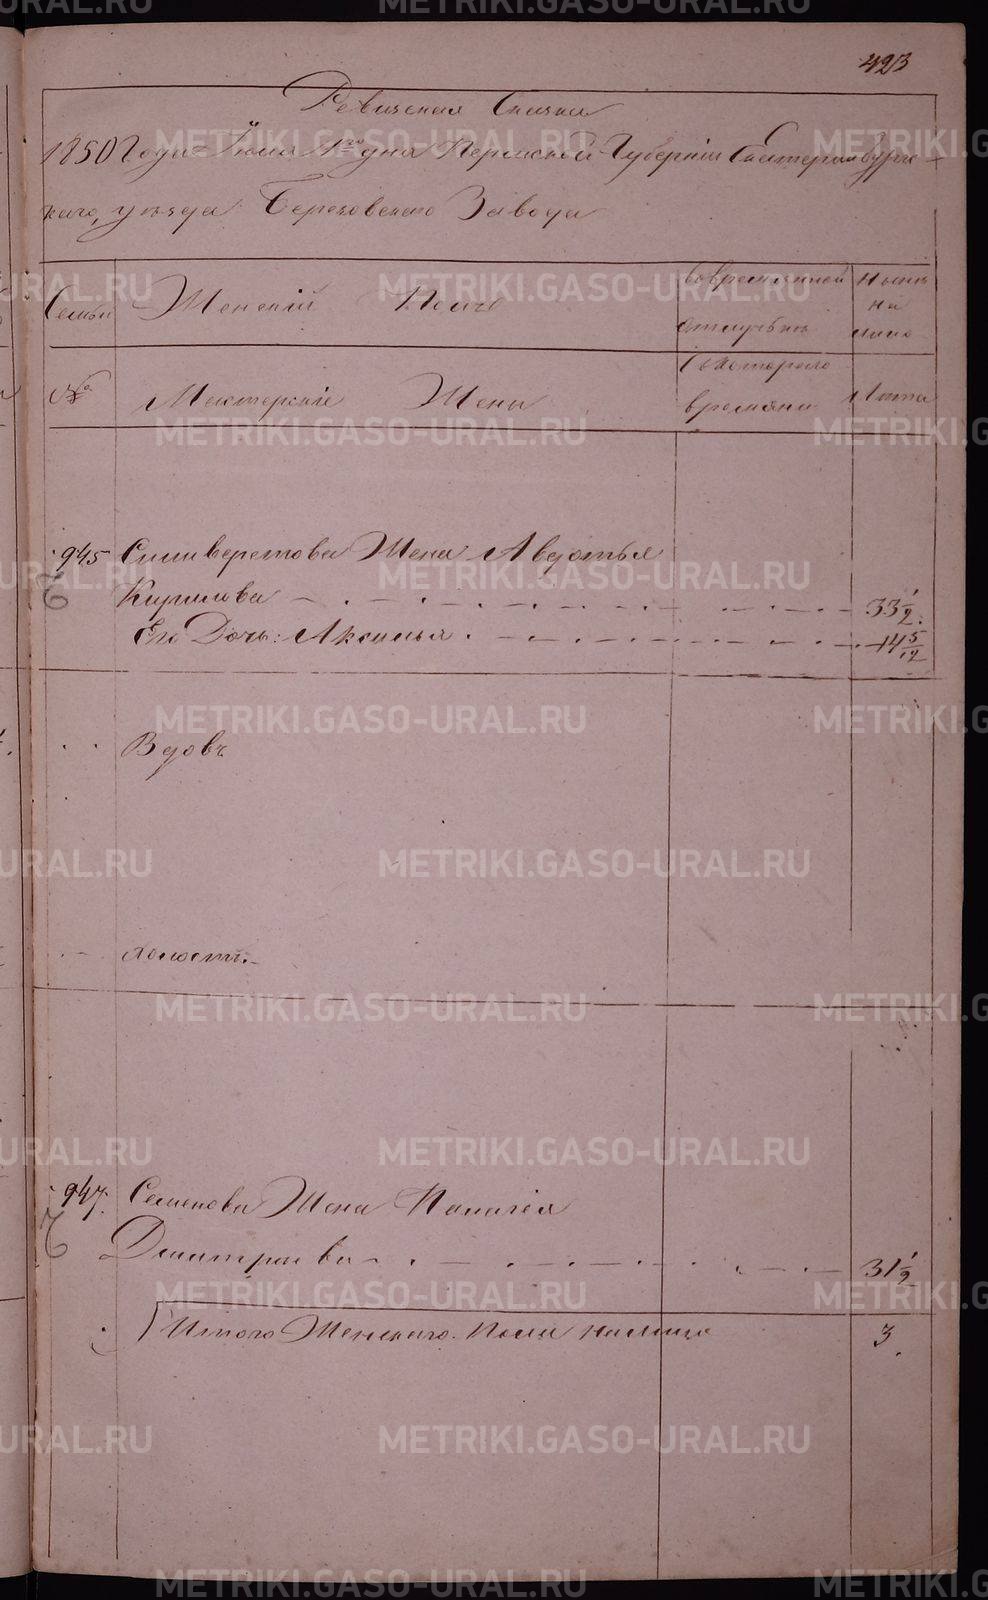 423
Ревизская Сказка
1850 Года Июля 1го дня Пермской Губернии Екатеринбургс-
каго, уезда Березовского Завода
Семьи Женский Полъ вовременной отлучьке ныне на лицо
№ Мастерские Жены с котораго времяни Лета
945 Силиверстова Жена Авдотья
Кирилова 33 1/2
Его Дочь: Аксинья 14 5/12
Вдовъ
холостъ
947. Семенова Жена Палагея
Дмитриева 31 1/2
Итого Женскаго Пола налицо 3
METRIKI.GASO-URAL.RU